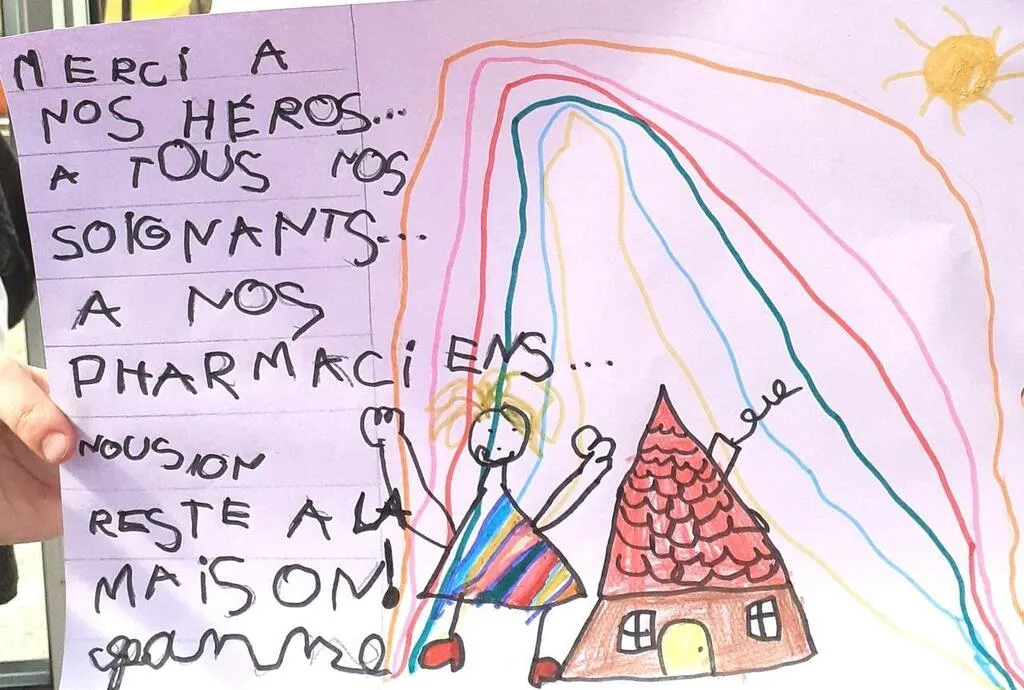 MERCi A
NOS HÉROS...
A TOUS NOS
SOIGNANTS...
A NOS
PHARMACiENS...
NOUSION
RESTE A LA
MAiSON!